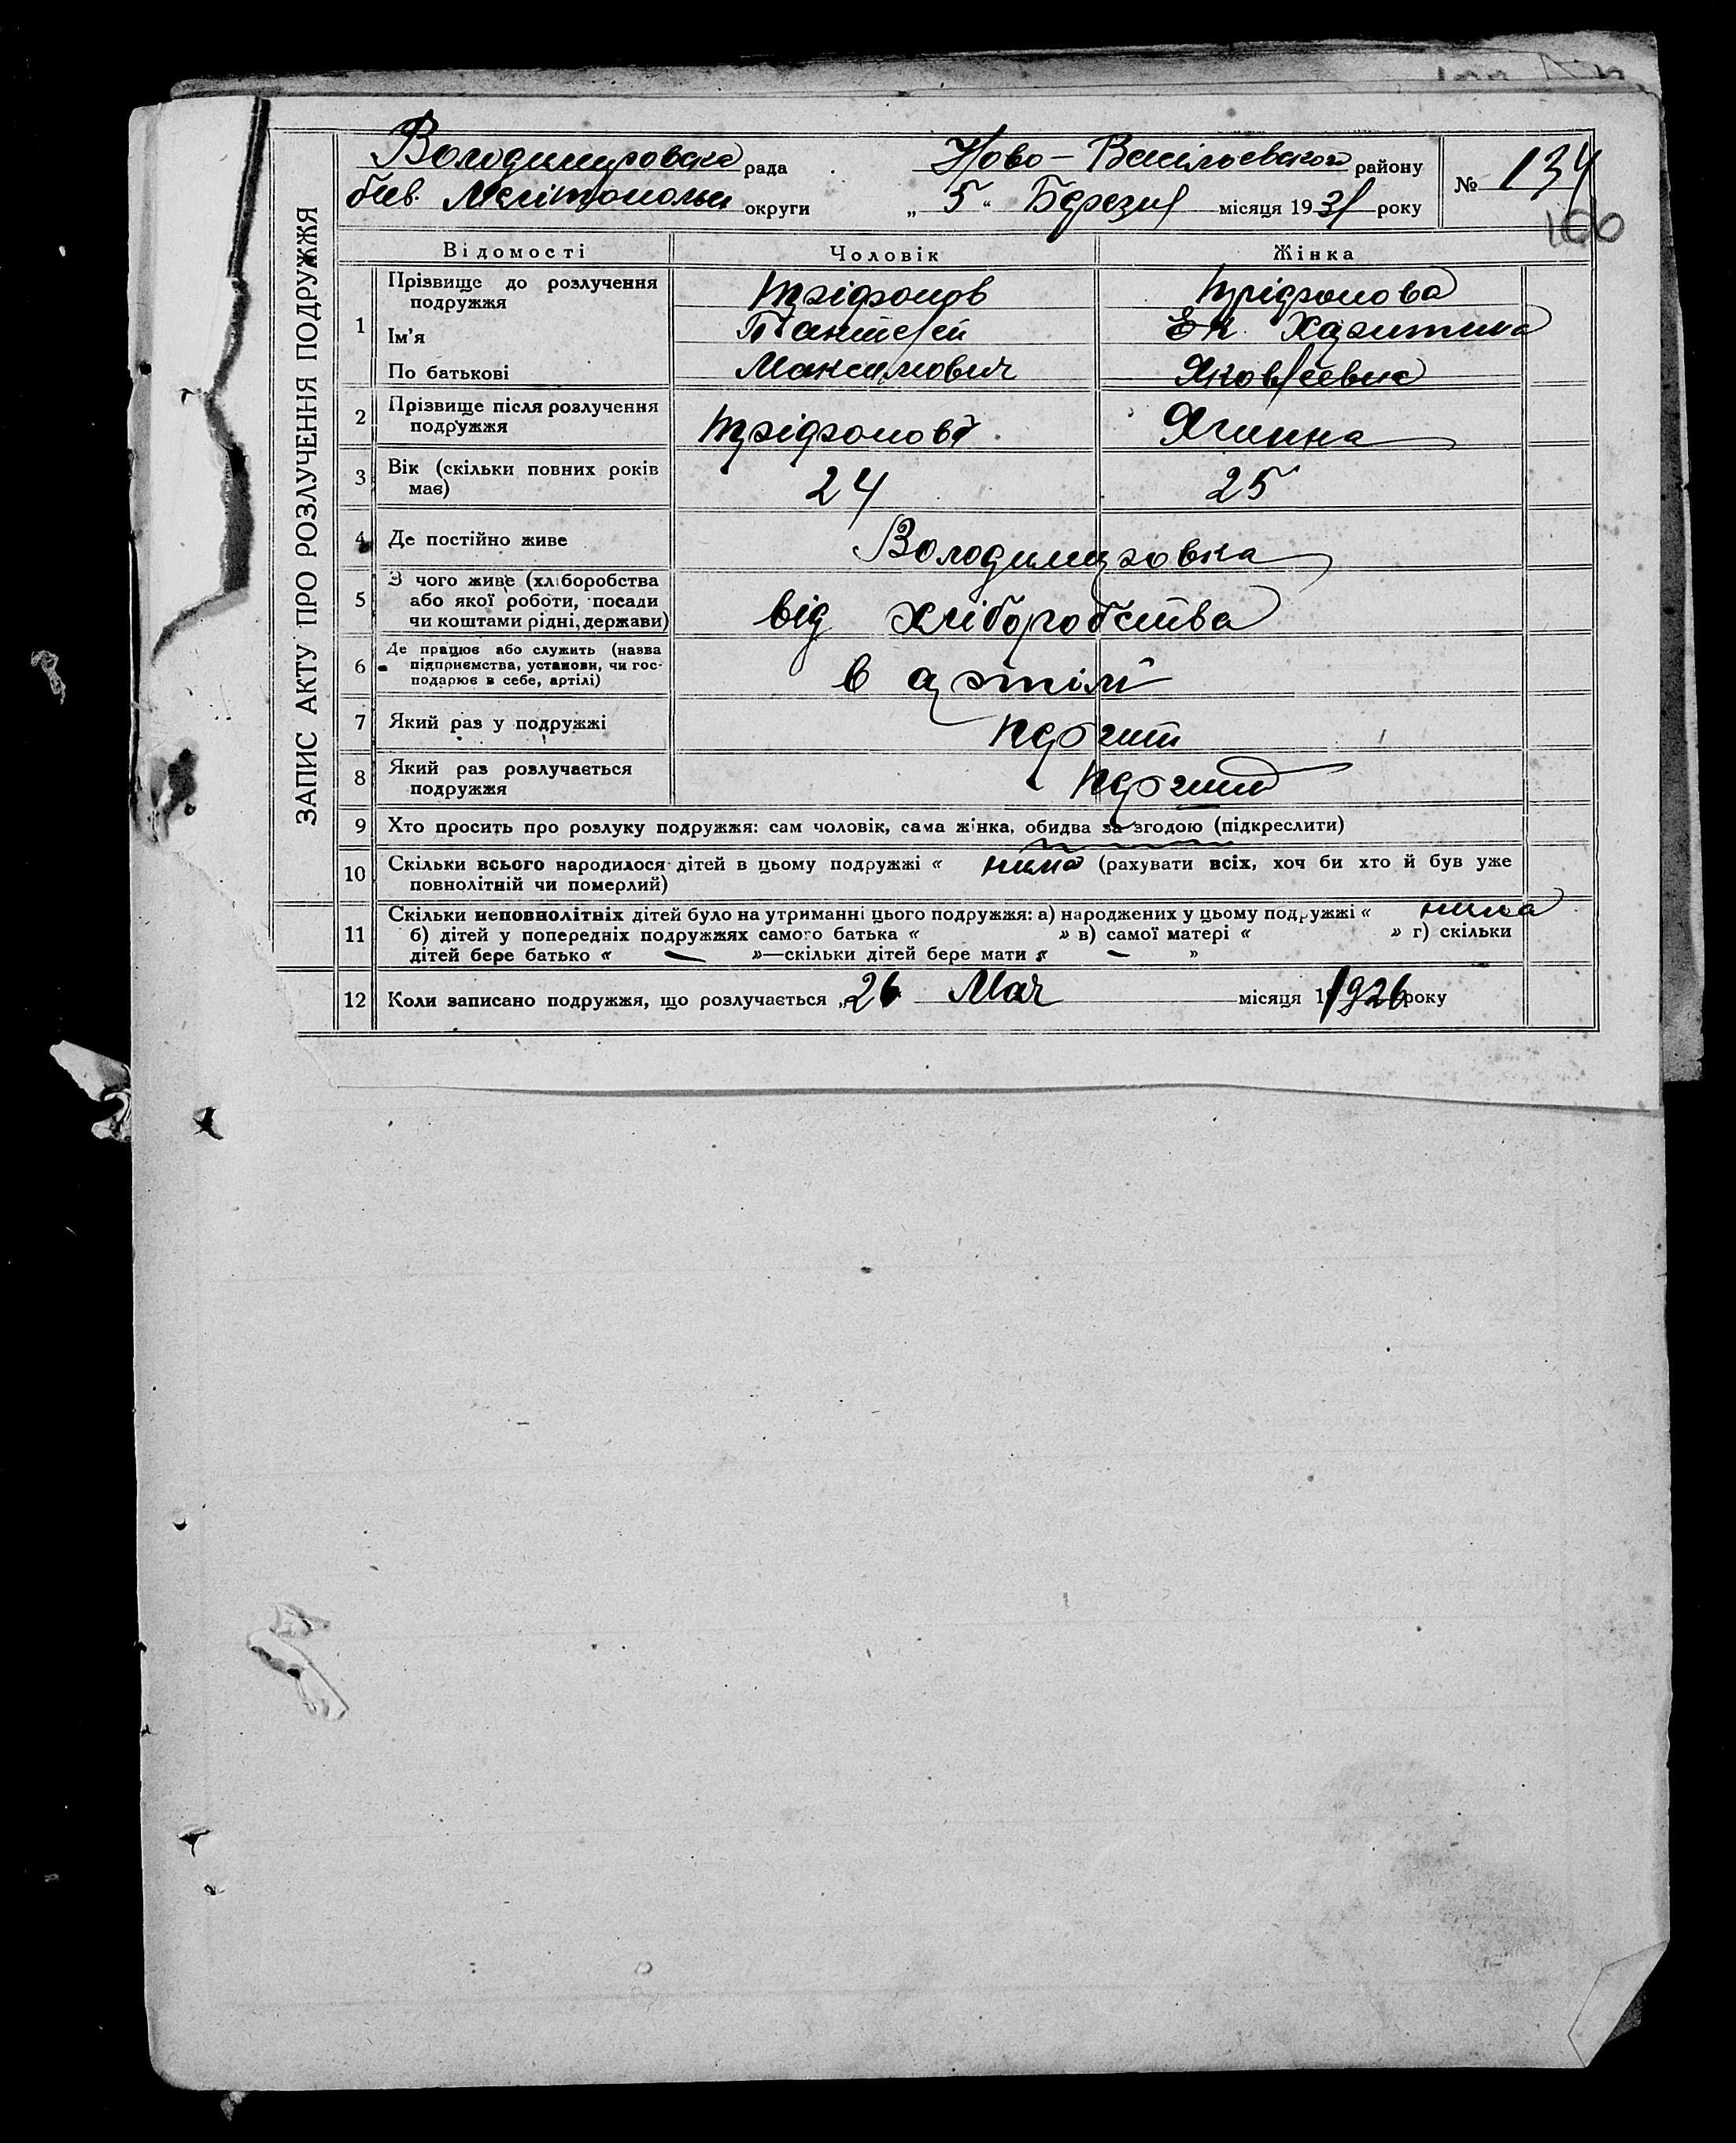 ЗАПИС АКТУ ПРО РОЗЛУЧЕННЯ ПОДРУЖЖЯ
Володимировска рада Ново-Васільевского району № 134
бив. Мелітопольк округи „ 5 “ Березня місяця 1931 року
100
Відомості Чоловік Жінка
1 Прізвище до розлучення подружжя Тріфонов Тріфонова
Ім’я Пантелей Ек
По батькові Максимович Яковлевна
2 Прізвище після розлучення подружжя Тріфонов Ягинна
3 Вік (скільки повних років має) 24 25
4 Де постійно живе Володимировка
5 З чого живе (хліборобства
або якої роботи, посади
чи коштами рідні, держави) від хліборобства
6 Де працює або служить (назва
підприємства, установи, чи гос-
подарює в себе, артілі) в артілі
7 Який раз у подружжі перший
8 Який раз розлучається
подружжя перший
9 Хто просить про розлуку подружжя: сам чоловік, сама жінка, обидва за згодою (підкреслити)
10 Скільки всього народилося дітей в цьому подружжі « нима (рахувати всіх, хоч би хто й був уже
повнолітній чи померлий)
11 Скільки неповнолітніх дітей було на утриманні цього подружжя: а) народжених у цьому подружжі « нима
б) дітей у попередніх подружжях самого батька « » в) самої матері « » г) скільки
дітей бере батько « — »—скільки дітей бере мати « — »
12 Коли записано подружжя, що розлучається „26 Мая місяця 1926 року